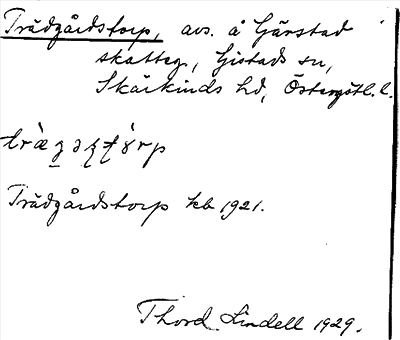 Trädgårdstorp, avs. å Gärstad
skatteg, Gistads sn,
Skärkinds hd, Östergötl. l.
Trädgårdstorp kb 1921.
Thord Lindell 1929.